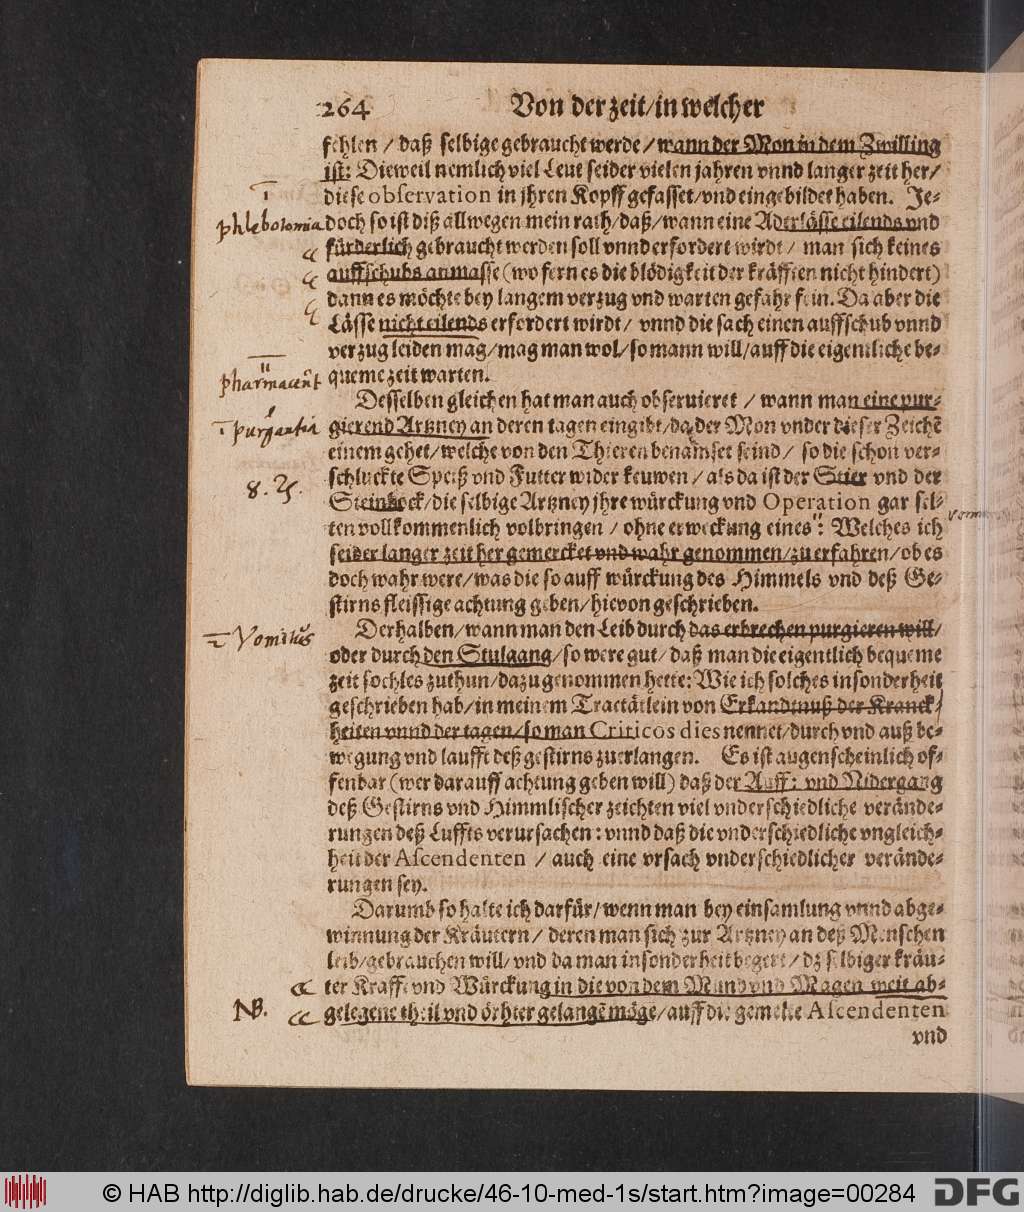 264 Von der zeit/in welcher
fehlen / daß selbige gebraucht werde / wann der Mon in dem Zwilling
ist: Dieweil nemlich viel Leut seider vielen jahren vnnd langer zeit her/
diese observation in jhren Kopff gefasset/vnd eingebildet haben. Je-
phlebotomia
doch so ist diß allwegen mein rath/daß/wann eine Aderlässe eilends vnd
fürderlich gebraucht werden soll vnnd erfordert wirdt / man sich keines
auffschubs anmasse (wo fern es die blödigkeit der kräfften nicht hindert)
dann es möchte bey langem verzug vnd warten gefahr sein. Da aber die
Lässe nicht eilends erfordert wirdt / vnnd die sach einen auffschub vnnd
verzug leiden mag/mag man wol/so mann will/auff die eigentliche be-
queme zeit warten.
Desselben gleichen hat man auch obseruieret / wann man eine pur-
purgantia
gierend Artzney an deren tagen eingibt/da der Mon vnder dieser Zeichē
einem gehet/welche von den Thieren benamset seind / so die schon ver-
schluckte Speiß vnd Futter wider keuwen / als da ist der Stier vnd der
Steinbock/die selbige Artzney jhre würckung vnd Operation gar sel-
ten vollkommenlich volbringen / ohne erweckung eines : Welches ich
seider langer zeit her gemercket vnd wahr genommen/zu erfahren/ob es
doch wahr were/was die so auff würckung des Himmels vnd deß Ge-
stirns fleissige achtung geben/hievon geschrieben.
Vomitus
Derhalben/wann man den Leib durch das erbrechen purgieren will/
oder durch den Stulgang/so were gut/daß man die eigentlich bequeme
zeit sochles zuthun/dazu genommen hette: Wie ich solches insonderheit
geschrieben hab/in meinem Tractätlein von Erkandtnuß der Kranck-
heiten vnnd der tagen/so man Criticos dies nennet/durch vnd auß be-
wegung vnd laufft deß gestirns zuerlangen. Es ist augenscheinlich of-
fenbar (wer darauff achtung geben will) daß der Auff: vnd Nidergang
deß Gestirns vnd Himmlischer zeichten viel vnderschiedliche verände-
rungen deß Luffts verursachen : vnnd daß die vnderschiedliche vngleich-
heit der Ascendenten / auch eine vrsach vnderschiedlicher verände-
rungen sey.
Darumb so halte ich darfür/wenn man bey einsamlung vnnd abge-
winnung der Kräutern / deren man sich zur Artzney an deß Menschen
leib/gebrauchen will/vnd da man insonderheit begert / dz selbiger kräu-
ter Krafft vnd Würckung in die von dem Mund vnd Magen weit ab-
NB.
gelegene theil vnd örhter gelangē möge/auff die gemelte Ascendenten
vnd
© HAB http://diglib.hab.de/drucke/46-10-med-1s/start.htm?image=00284
DFG